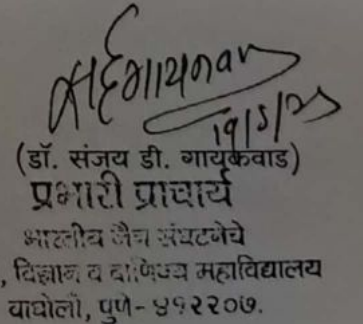 19/5/25
(डॉ. संजय डी. गायकवाड)
प्रभारी प्राचार्य
भारतीय जैन संघटनेचे
, विज्ञान व वाणिज्य महाविद्यालय
वाघोली, पुणे - ४१२२०७.